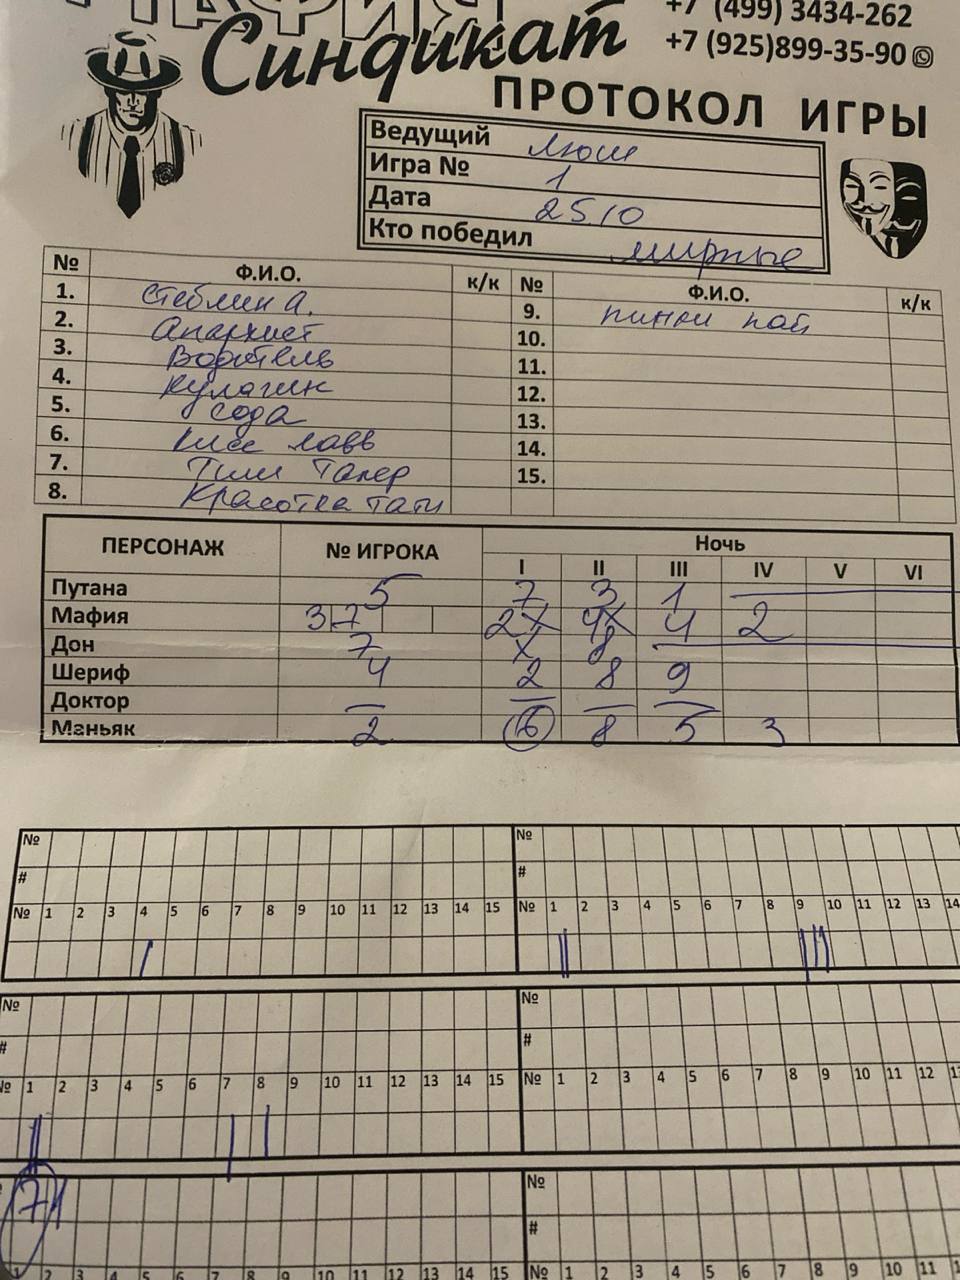 МАФИЯ
Синдикат
+7 (499) 3434-262
+7 (925)899-35-90
ПРОТОКОЛ ИГРЫ
Ведущий Люш
Игра № 1
Дата 25/10
Кто победил мирные
№ Ф.И.О. к/к № Ф.И.О. к/к
1. Стеблин А. 9. пинки пай
2. Анархист 10.
3. Водитель 11.
4. Кулагин 12.
5. сода 13.
6. Кисс лавв 14.
7. Тили Талер 15.
8. Красотка Тати
ПЕРСОНАЖ № ИГРОКА Ночь
I II III IV V VI
Путана 5 7 3 1 —
Мафия 3 7 2X 4X 4 2
Дон 7 X 8 —
Шериф 4 2 8 9
Доктор — — — —
Маньяк 2 6 8 5 3
№ №
# #
№ 1 2 3 4 5 6 7 8 9 10 11 12 13 14 15 № 1 2 3 4 5 6 7 8 9 10 11 12 13 14
№ №
# #
№ 1 2 3 4 5 6 7 8 9 10 11 12 13 14 15 № 1 2 3 4 5 6 7 8 9 10 11 12
71 №
#
1 2 3 4 5 6 7 8 9 10 11 12 13 14 15 № 1 2 3 4 5 6 7 8 9 10 11